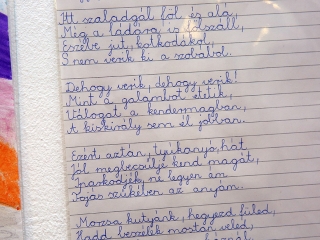 Itt szaladgál föl és alá,
Még a ládára is felszáll,
Eszébe jut, kotkodákol,
S nem verik ki a szobából.
Dehogy verik, dehogy verik!
Mint a galambot etetik,
Válogat a kendermagban,
A kiskirály sem él jobban.
Ezért aztán, tyúkanyó, hát
Jól megbecsülje kend magát,
Iparkodjék, ne legyen ám
Tojás szűkében az anyám.
Morzsa kutyánk, hegyezd füled,
Hadd beszélek mostan veled,